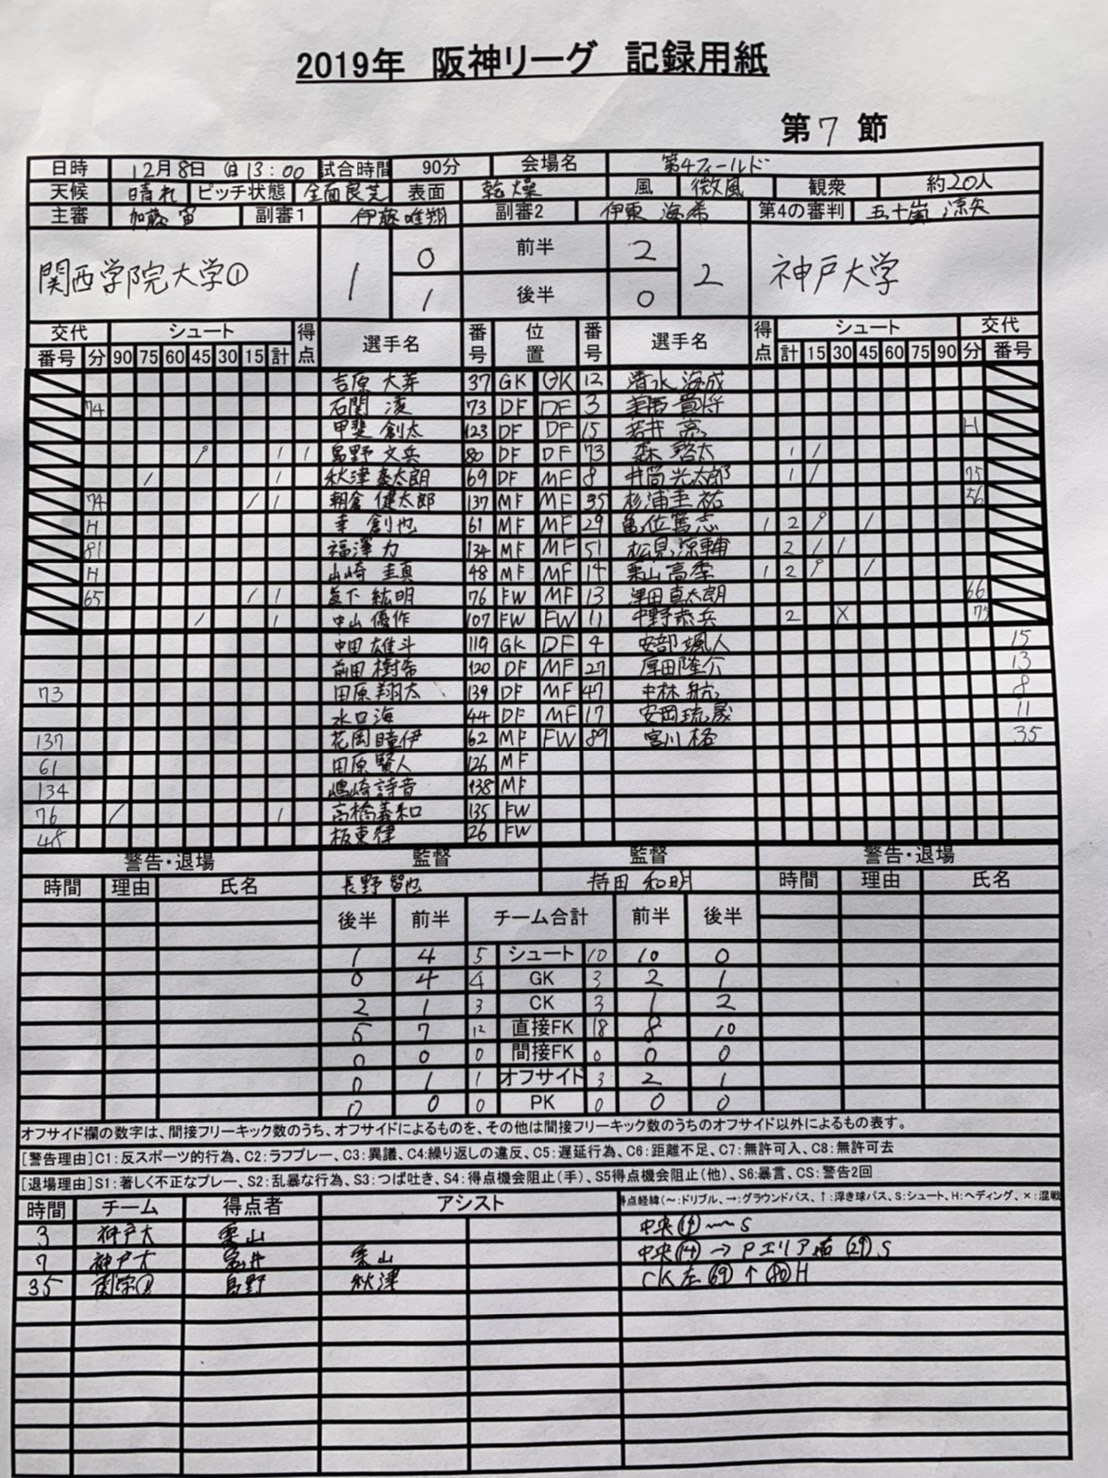 2019年 阪神リーグ 記録用紙
第 7 節
日時 12月8日 日 13:00 試合時間 90分 会場名 第4フィールド
天候 晴れ ピッチ状態 全面良芝 表面 乾燥 風 微風 観衆 約20人
主審 加藤 宙 副審1 伊藤唯翔 副審2 伊東 海希 第4の審判 五十嵐 涼矢
関西学院大学① 1 0 前半 2 2 神戸大学
1 後半 0
交代 シュート 得点 選手名 番号 位置 番号 選手名 得点 シュート 交代
番号 分 90 75 60 45 30 15 計 計 15 30 45 60 75 90 分 番号
吉原 大芽 37 GK GK 12 清水 海成
74 石関 凌 73 DF DF 3 貴将
甲斐 創太 123 DF DF 15 若井 亮 H
1 1 島野 文兵 80 DF DF 73 森 啓太 1 /
/ 1 秋津 泰太朗 69 DF MF 8 井筒 光太郎 1 / 75
74 / 1 朝倉 健太郎 137 MF MF 35 杉浦圭祐 56
H 幸 創也 61 MF MF 29 亀位篤志 1 2 /
81 福澤 力 134 MF MF 51 松見 涼輔 2 / /
H 山崎 圭真 48 MF MF 14 栗山 高季 1 2 /
65 / 1 宮下 紘明 76 FW MF 13 津田直太朗 66
/ 1 中山 優作 107 FW FW 11 中野恭兵 2 × 75
中田 雄斗 119 GK DF 4 安部 颯人 15
前田 樹希 120 DF MF 27 厚田隆介 13
73 田原 翔太 139 DF MF 47 中林 航 8
水口海 44 DF MF 17 安岡琉晟 11
137 花岡瞳伊 62 MF FW 89 宮川 格 35
61 田原 賢人 126 MF
134 嶋崎詩音 138 MF
76 / 1 高橋義和 135 FW
48 板東律 26 FW
警告・退場 監督 監督 警告・退場
時間 理由 氏名 長野 智也 持田 和明 時間 理由 氏名
後半 前半 チーム合計 前半 後半
1 4 5 シュート 10 10 0
0 4 4 GK 3 2 1
2 1 3 CK 3 1 2
5 7 12 直接FK 18 8 10
0 0 0 間接FK 0 0 0
0 1 1 オフサイド 3 2 1
0 0 0 PK 0 0 0
オフサイド欄の数字は、間接フリーキック数のうち、オフサイドによるものを、その他は間接フリーキック数のうちのオフサイド以外によるもの表す。
[警告理由]C1:反スポーツ的行為、C2:ラフプレー、C3:異議、C4:繰り返しの違反、C5:遅延行為、C6:距離不足、C7:無許可入、C8:無許可去
[退場理由]S1:著しく不正なプレー、S2:乱暴な行為、S3:つば吐き、S4:得点機会阻止(手)、S5得点機会阻止(他)、S6:暴言、CS:警告2回
時間 チーム 得点者 アシスト 得点経緯(~:ドリブル、→:グラウンドパス、↑:浮き球パス、S:シュート、H:ヘディング、×:混戦
3 神戸大 栗山 中央⑭~S
7 神戸大 栗山 中央⑭→Pエリア右㉙S
35 関学① 島野 秋津 CK左(69)↑(80)H